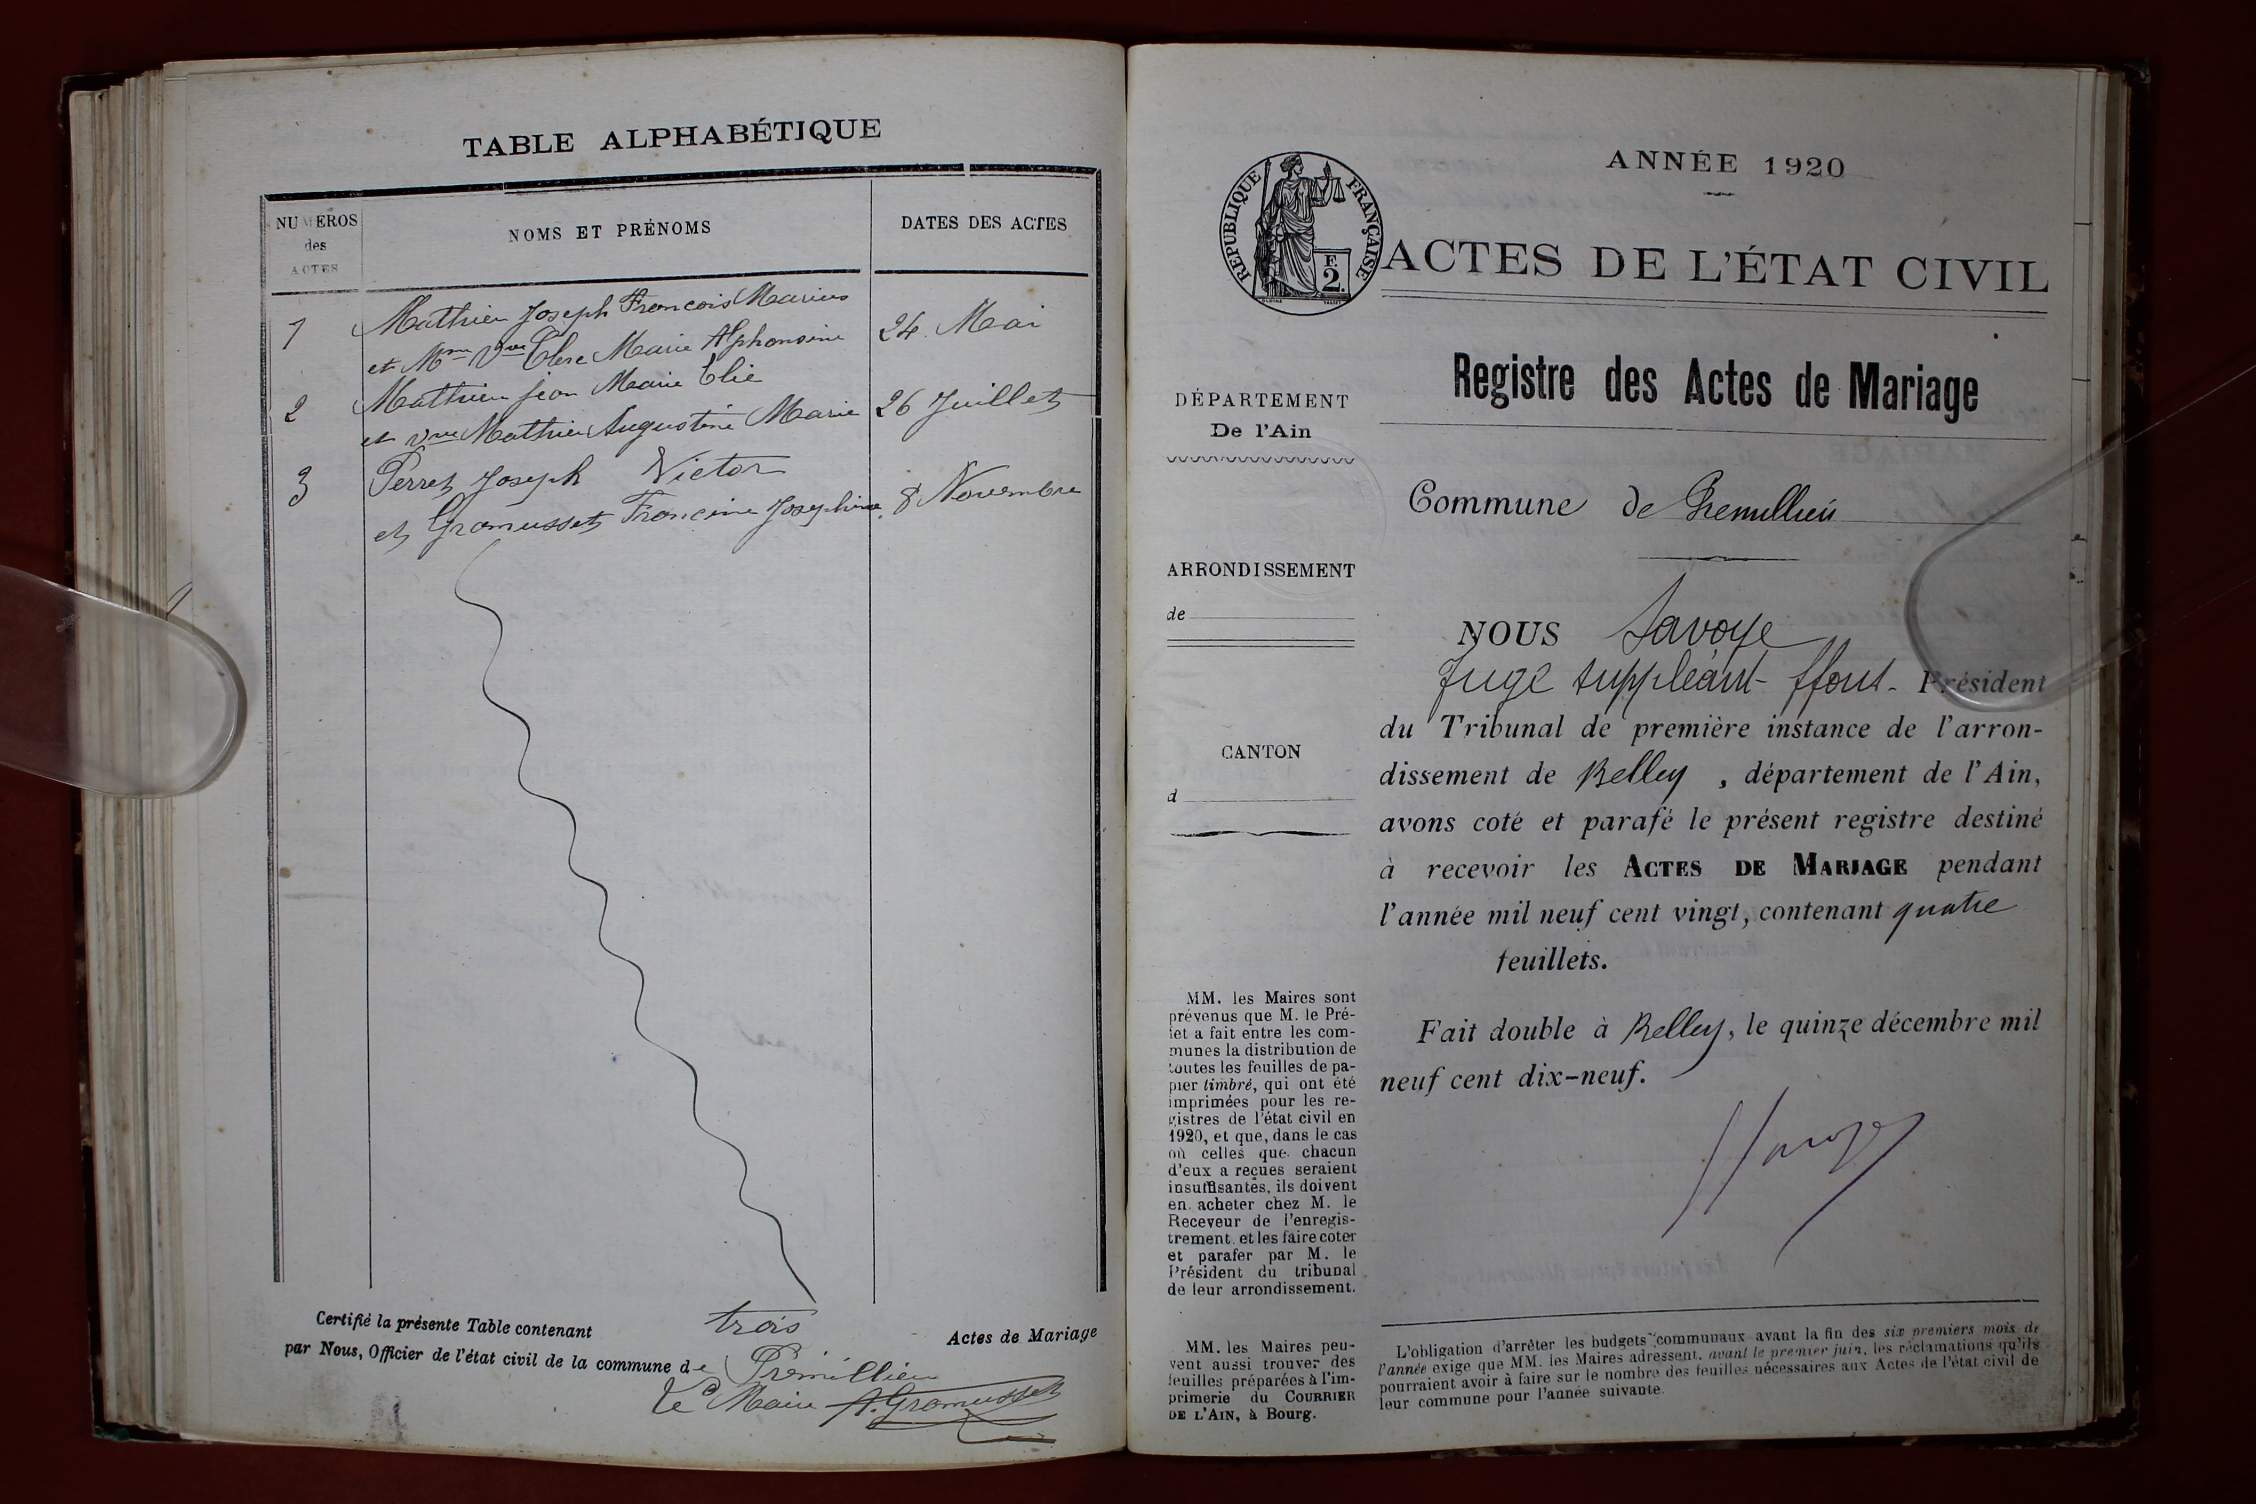 TABLE ALPHABÉTIQUE
NUMEROS
des
ACTES
NOMS ET PRÉNOMS
DATES DES ACTES
1 Mathieu Joseph Francois Marius
et Mme Vve Clerc Marie Alphonsine 24 Mai
2 Mathieu Jean Marie Elie
et Vve Mathieu Augustine Marie 26 Juillet
3 Perret Joseph Victor
et Gromusset Francine Josephine 8 Novembre
Certifié la présente Table contenant trois Actes de Mariage
par Nous, Officier de l'état civil de la commune de Prémillieu
Le Maire A. Gromusset
ANNÉE 1920
RÉPUBLIQUE FRANÇAISE
F.
2.
ACTES DE L'ÉTAT CIVIL
Registre des Actes de Mariage
DÉPARTEMENT
De l'Ain
Commune de Premillieu
ARRONDISSEMENT
de
CANTON
d
NOUS Savoye
Juge suppléant ffont. Président
du Tribunal de première instance de l'arron-
dissement de Belley, département de l'Ain,
avons coté et parafé le présent registre destiné
à recevoir les ACTES DE MARIAGE pendant
l'année mil neuf cent vingt, contenant quatre
feuillets.
Fait double à Belley, le quinze décembre mil
neuf cent dix-neuf.
MM. les Maires sont
prévenus que M. le Pré-
fet a fait entre les com-
munes la distribution de
toutes les feuilles de pa-
pier timbré, qui ont été
imprimées pour les re-
gistres de l'état civil en
1920, et que, dans le cas
où celles que chacun
d'eux a reçues seraient
insuffisantes, ils doivent
en acheter chez M. le
Receveur de l'enregis-
trement et les faire coter
et parafer par M. le
Président du tribunal
de leur arrondissement.
MM. les Maires peu-
vent aussi trouver des
feuilles préparées à l'im-
primerie du COURRIER
DE L'AIN, à Bourg.
L'obligation d'arrêter les budgets communaux avant la fin des six premiers mois de
l'année exige que MM. les Maires adressent, avant le premier juin, les réclamations qu'ils
pourraient avoir à faire sur le nombre des feuilles nécessaires aux Actes de l'état civil de
leur commune pour l'année suivante.